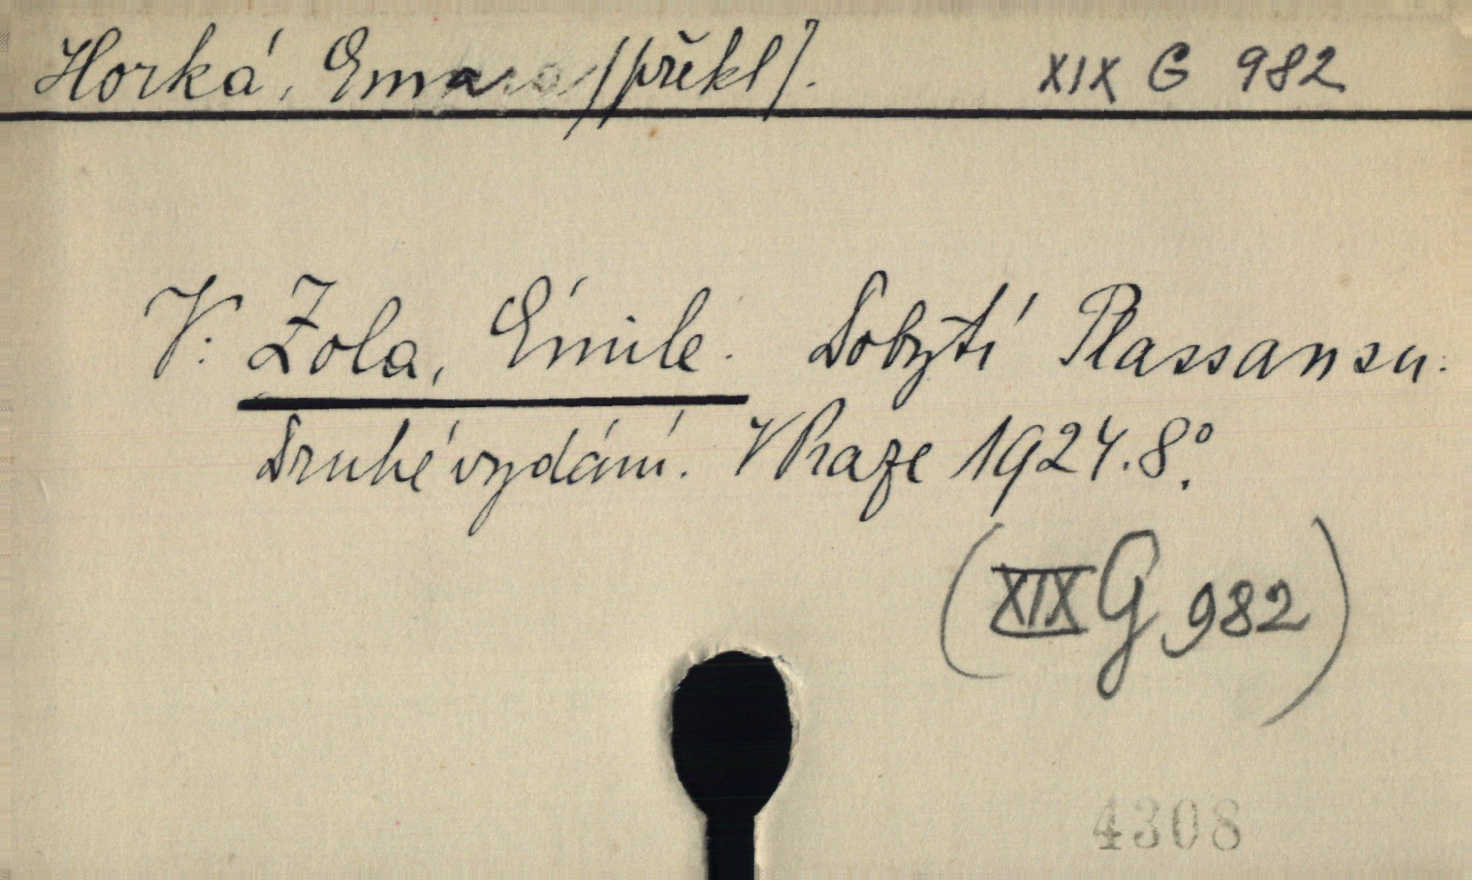 Horká, Ema [překl].
XIX G 982
V: Zola, Émile. Dobytí Plassansu.
Druhé vydání. V Praze 1924. 8°.
(XIX G 982)
4308